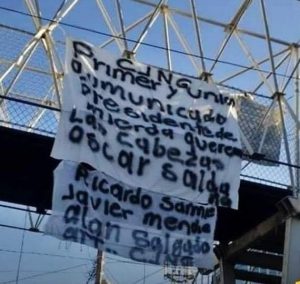 CJNG
Primer y unico
comunicado
Presidente de
mierda queremos
Las cabezas
oscar saldaña
Ricardo sanme
Javier mende
alan salgado
att. CJNG